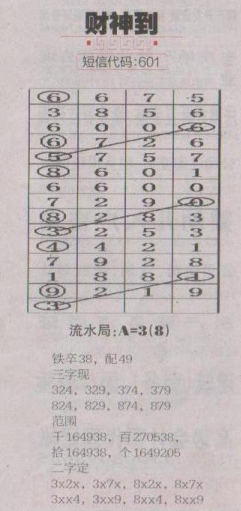 财神到
短信代码:601
6 6 7 5
3 8 5 6
6 0 0 6
6 7 2 6
5 7 5 7
8 6 0 1
6 6 0 0
7 2 9 0
8 2 8 3
3 2 5 3
4 4 2 1
7 9 2 8
1 8 8 4
9 2 1 9
3
流水局:A=3(8)
铁卒38,配49
三字现
324,329,374,379
824,829,874,879
范围
千164938,百270538,
拾164938,个1649205
二字定
3x2x,3x7x,8x2x,8x7x
3xx4,3xx9,8xx4,8xx9